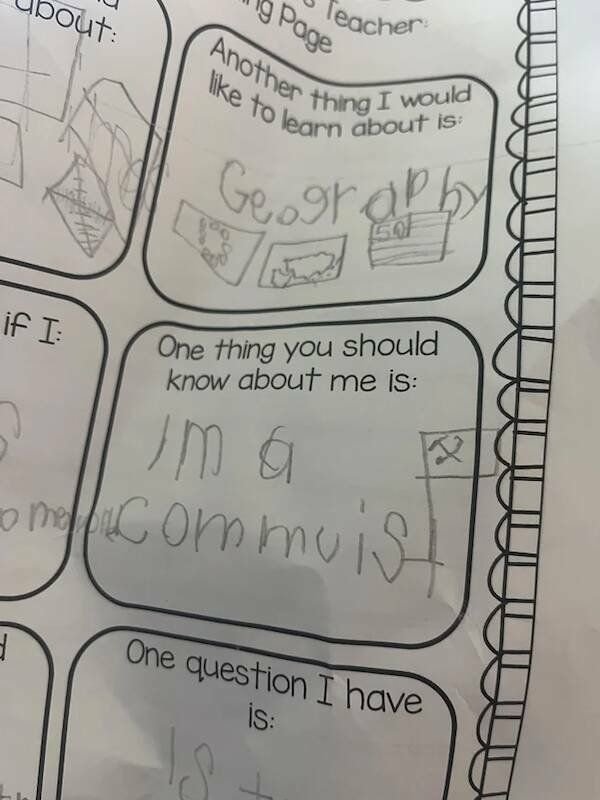 about:
Teacher:
ng Page
Another thing I would
like to learn about is:
Geography
if I:
One thing you should
know about me is:
Im a
Commuist
One question I have
is:
Is t